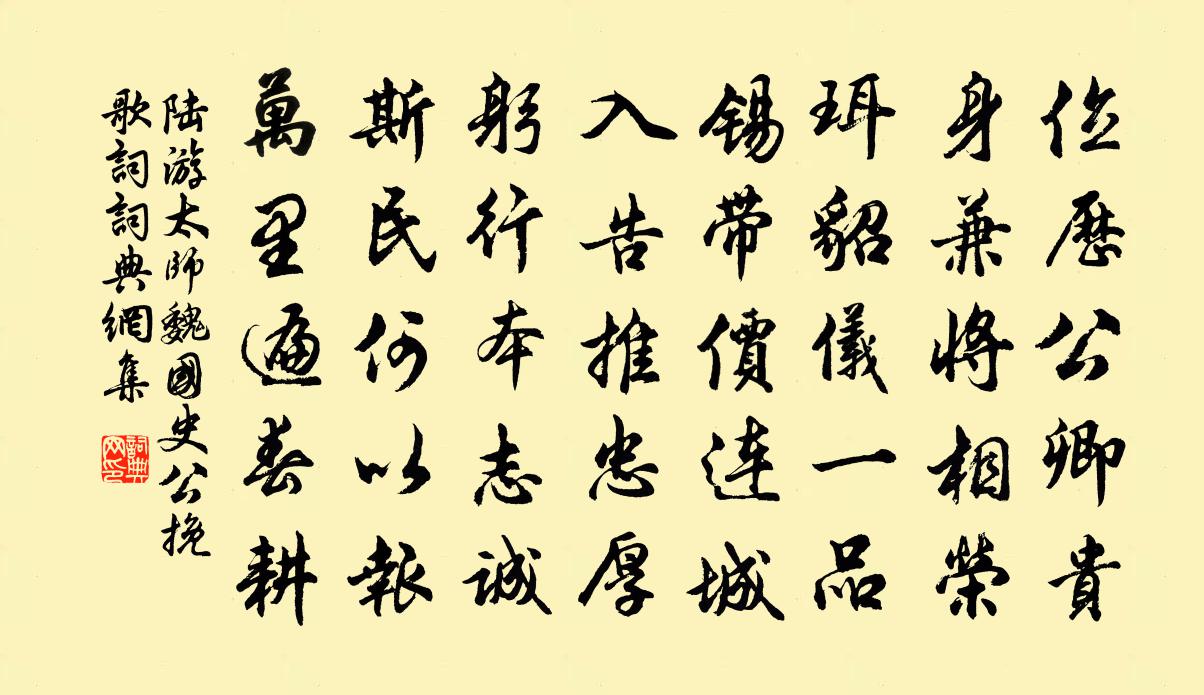 位歷公卿貴
身兼將相榮
珥貂儀一品
錫帶價連城
入告推忠厚
躬行本志誠
斯民何以報
萬里遍春耕
陸游太師魏國史公挽
歌詞詞典網集
詞典
网印